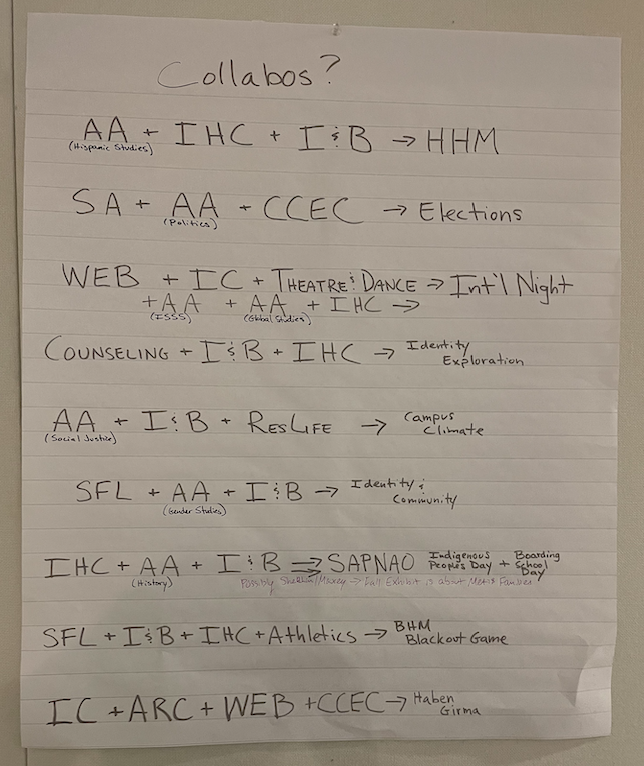 Collabos?
AA + IHC + I & B → HHM
(Hispanic Studies)
SA + AA + CCEC → Elections
(Politics)
WEB + IC + THEATRE & DANCE → Int'l Night
+ AA + AA + IHC →
(ISSS) (Global Studies)
COUNSELING + I & B + IHC → Identity
Exploration
AA + I & B + RESLIFE → Campus
Climate
(Social Justice)
SFL + AA + I & B → Identity &
Community
(Gender Studies)
IHC + AA + I & B ⇒ SAPNAO Indigenous Peoples Day + Boarding School Day
(History)
Possibly → Fall Exhibit is about Metis Families
SFL + I & B + IHC + Athletics → BHM
Blackout Game
IC + ARC + WEB + CCEC → Haben
Girma